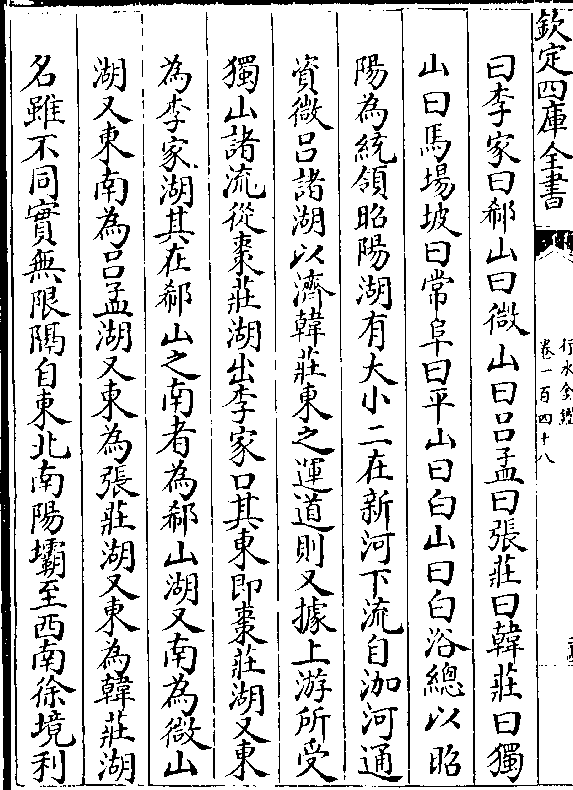 欽定四庫全書
行水金鑑
卷一百四十八
曰李家曰郗山曰微山曰吕孟曰張莊曰韓莊曰獨
山曰馬場坡曰常阜曰平山曰白山曰白浴總以昭
陽為統領昭陽湖有大小二在新河下流自泇河通
資微吕諸湖以濟韓莊東之運道則又據上游所受
獨山諸流從棗莊湖出李家口其東即棗莊湖又東
為李家湖其在郗山之南者為郗山湖又南為微山
湖又東南為吕孟湖又東為張莊湖又東為韓莊湖
名雖不同實無限隔自東北南陽壩至西南徐境利